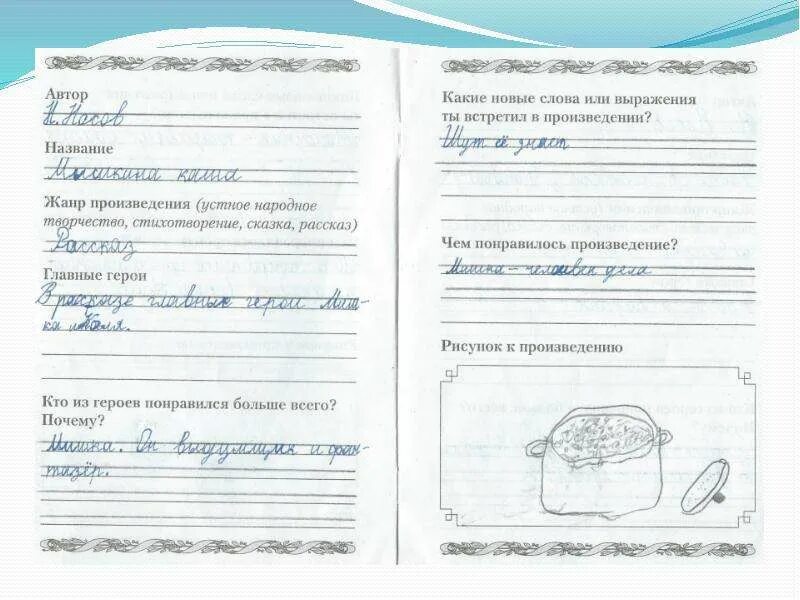 Автор
Н. Носов
Название
Мишкина каша
Жанр произведения (устное народное
творчество, стихотворение, сказка, рассказ)
Рассказ
Главные герои
В рассказе главные герои Миш-
ка и Коля.
Кто из героев понравился больше всего?
Почему?
Мишка. Он выдумщик и фан-
тазёр.
Какие новые слова или выражения
ты встретил в произведении?
Шут её знает
Чем понравилось произведение?
Мишка – человек дела
Рисунок к произведению